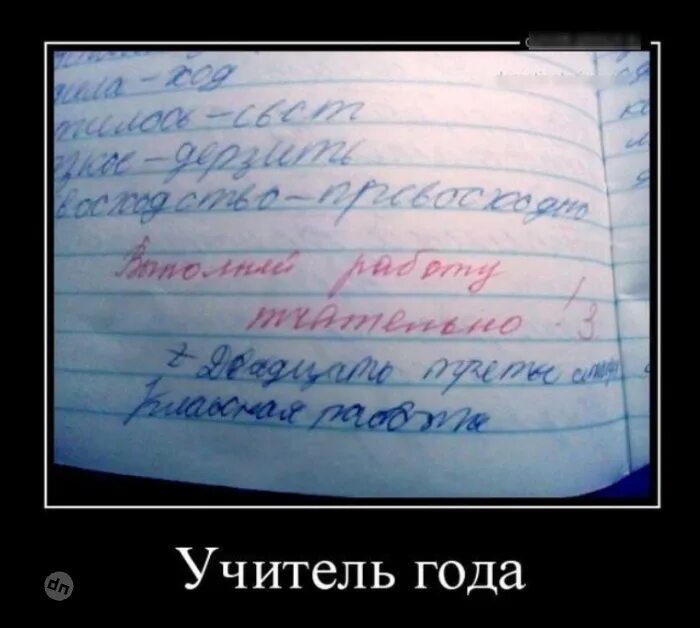 ход
свст
дерзить
восходство-превосходно
Выполняй работу
тчательно! 3
Двадцать третье
Классная работа
Учитель года
дп